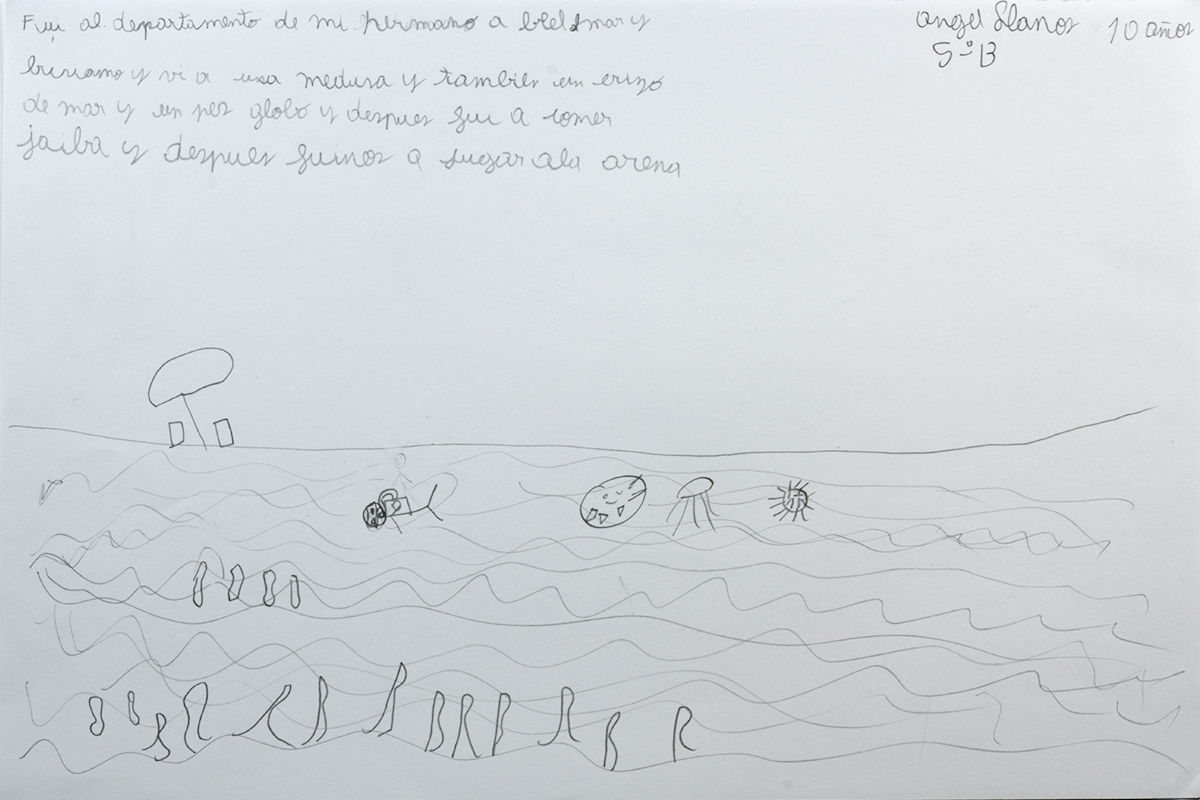 Fui al departamento de mi hermano a ver el mar y
buseamos y vi a una medusa y tambien un erizo
de mar y un pez globo y despues fui a comer
jaiba y despues fuimos a jugar ala arena
angel llanos 10 años
5º B